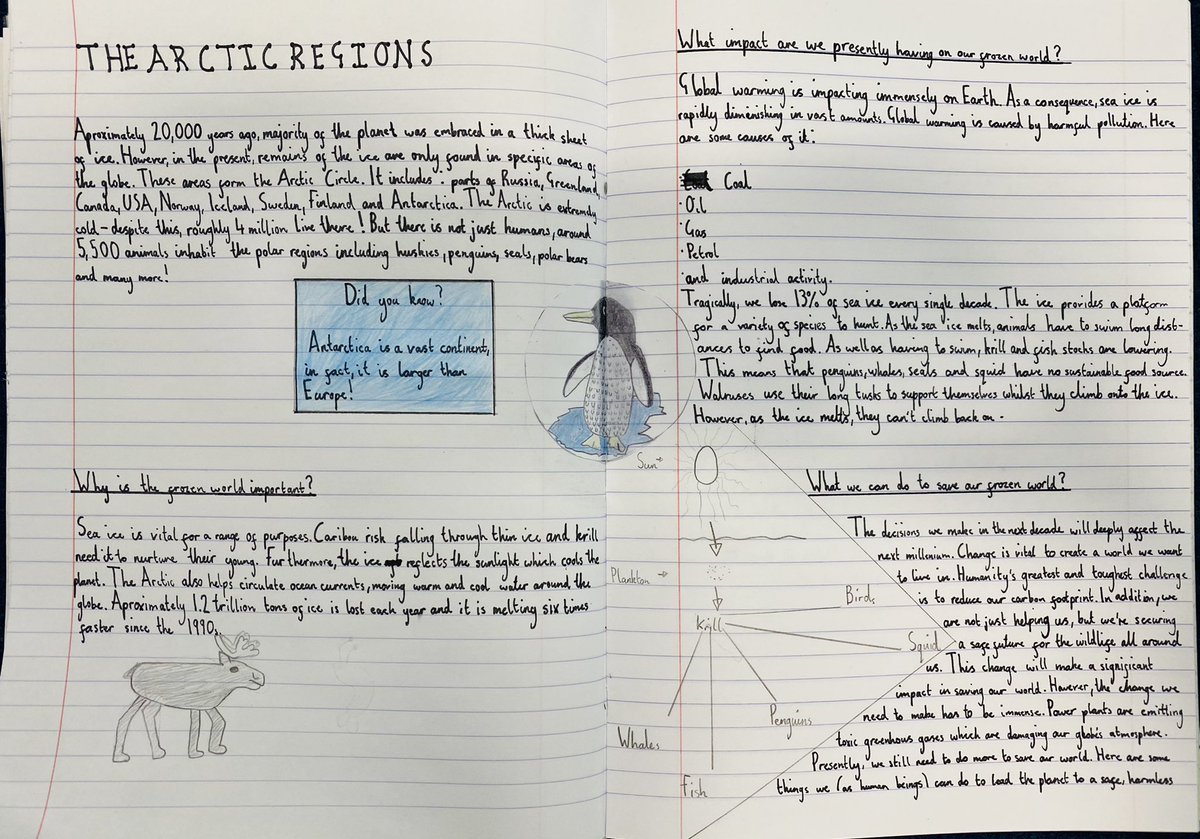 THE ARCTIC REGIONS
Aproximately 20,000 years ago, majority of the planet was embraced in a thick sheet
of ice. However, in the present, remains of the ice are only found in specific areas of
the globe. These areas form the Arctic Circle. It includes: parts of Russia, Greenland,
Canada, USA, Norway, Iceland, Sweden, Finland and Antarctica. The Arctic is extremely
cold - despite this, roughly 4 million live there! But there is not just humans, around
5,500 animals inhabit the polar regions including huskies, penguins, seals, polar bears
and many more!
Did you know?
Antarctica is a vast continent,
in fact, it is larger than
Europe!
Why is the frozen world important?
Sea ice is vital for a range of purposes. Caribou risk falling through thin ice and krill
need it to nurture their young. Furthermore, the ice reflects the sunlight which cools the
planet. The Arctic also helps circulate ocean currents, moving warm and cool water around the
globe. Aproximately 1.2 trillion tons of ice is lost each year and it is melting six times
faster since the 1990s.
What impact are we presently having on our frozen world?
Global warming is impacting immensely on Earth. As a consequence, sea ice is
rapidly diminishing in vast amounts. Global warming is caused by harmful pollution. Here
are some causes of it:
Coal
·Oil
·Gas
·Petrol
·and industrial activity.
Tragically, we lose 13% of sea ice every single decade. The ice provides a platform
for a variety of species to hunt. As the sea ice melts, animals have to swim long dist-
ances to find food. As well as having to swim, krill and fish stocks are lowering.
This means that penguins, whales, seals and squid have no sustainable food source.
Walruses use their long tusks to support themselves whilst they climb onto the ice.
However, as the ice melts, they can't climb back on -
Sun→
Plankton →
Krill
Birds
Squid
Penguins
Whales
Fish
What we can do to save our frozen world?
The decisions we make in the next decade will deeply affect the
next millenium. Change is vital to create a world we want
to live in. Humanity's greatest and toughest challenge
is to reduce our carbon footprint. In addition, we
are not just helping us, but we're securing
a safe future for the wildlife all around
us. This change will make a significant
impact in saving our world. However, the change we
need to make has to be immense. Power plants are emitting
toxic greenhous gases which are damaging our globe's atmosphere.
Presently, we still need to do more to save our world. Here are some
things we (as human beings) can do to lead the planet to a safe, harmless